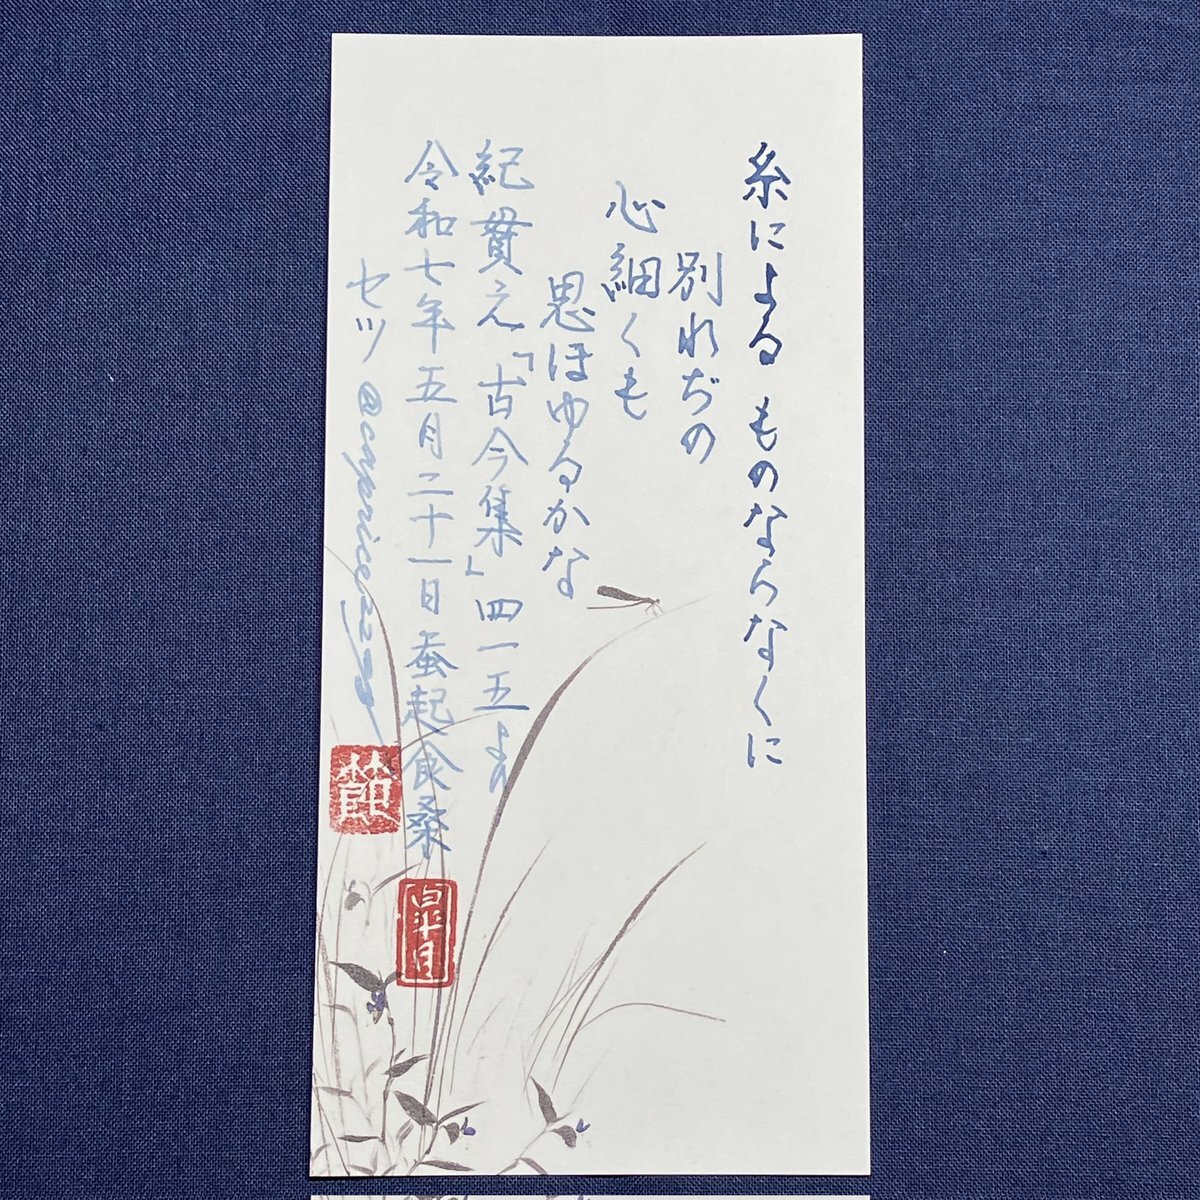 糸によるものならなくに
別れぢの
心細くも
思ほゆるかな
紀貫之「古今集」四一五より
令和七年五月二十一日蚕起食桑
セツ @caprice2290
節
皐月